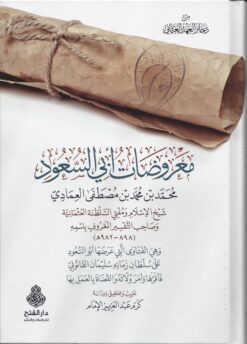 من
ذخائر العهد العثماني
معروضات أبي السعود
محمد بن محمد بن مصطفى العمادي
شيخ الإسلام ومفتي السلطنة العثمانية
وصاحب التفسير المعروف باسمه
(٨٩٨-٩٨٢هـ)
وهي الفتاوى التي عرضها أبو السعود
على سلطان زمانه سليمان القانوني
فأقرها وأمر ولاته والقضاة بالعمل بها
تعريب وتحقيق ودراسة
كرم عبد العزيز الإمام
دار الفتح
للدراسات والنشر